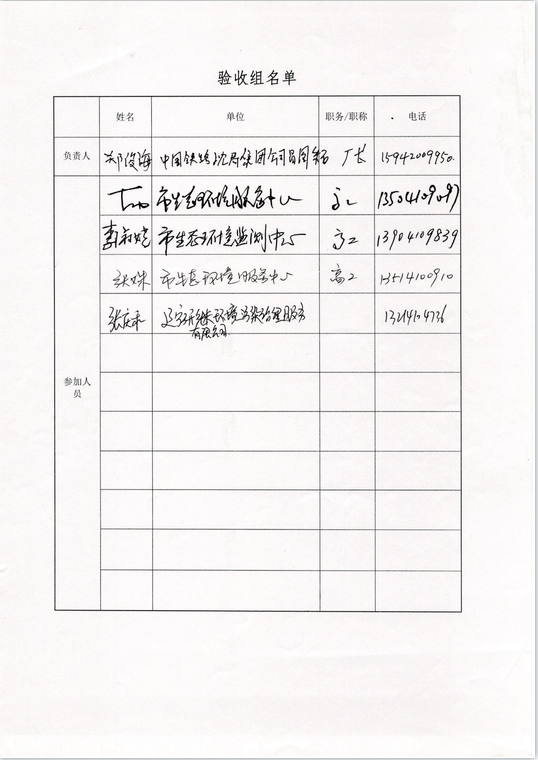 验收组名单
姓名 单位 职务/职称 电话
负责人 郑俊海 中国铁路沈局集团公司 厂长 15942009950
市生态环境服务中心 高工 13504109097
市生态环境监测中心 高工 13904109839
市生态环境服务中心 高工 13514100910
环境污染治理服务 13214104736
有限公司
参加人
员